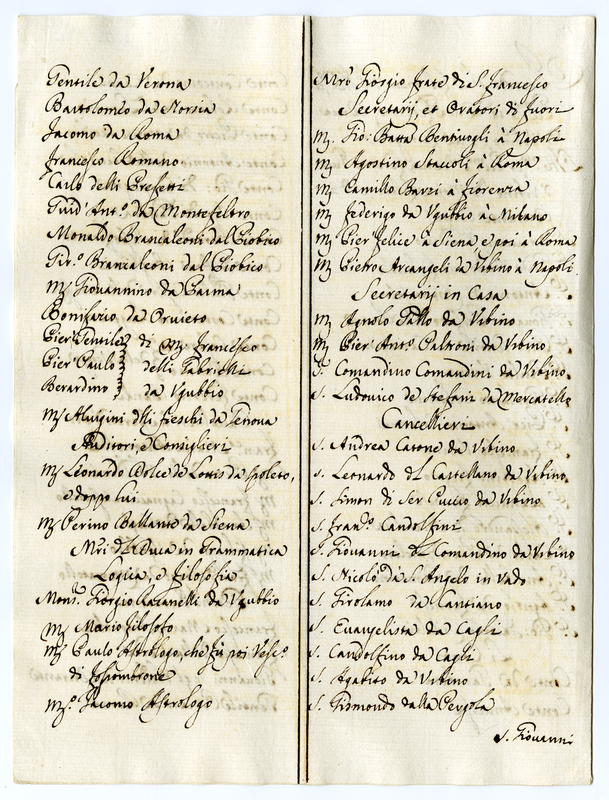 Gentile da Verona
Bartolomeo da Norsia
Jacomo da Roma
Francesco Romano
Carlo delli Prefetti
Guid' Ant.o da Montefeltro
Monaldo Brancaleoni dal Piobico
Gir.o Brancaleoni dal Piobico
M/ Giovannino da Parma
Bonifazio da Orvieto
Pier Gentile di M/ Francesco
Pier Paulo delli Fabrielli
Berardino da Vgubbio
M/ Aluigini delli fieschi da Genova
Auditori, e Consiglieri
M/ Leonardo Dolce de Lotis da Spoleto,
e doppo lui
M/ Perino Ballante da Siena
Mri del Duca in Grammatica
Logica, e Filosofia
Mons. Giorgio da Vgubbio
M/ Mario filosofo
M/ Paulo Astrologo, che fù poi Vesc.o
di Fossombrone
M.o Jacomo Astrologo
Mro Giorgio frate di S. Francesco
Secretarij, et Oratori di fuori
M/ Gio: Batta Bentivogli à Napoli
M/ Agostino Staccoli à Roma
M/ Camillo Barzi à Fiorenza
M/ Federigo da Vgubbio à Milano
M/ Pier felice à Siena e poi à Roma
M/ Pietro Arcangeli da Vrbino à Napoli
Secretarij in Casa
M/ Agnolo Gallo da Vrbino
M/ Pier Ant.o Paltroni da Vrbino
S. Comandino Comandini da Vrbino
S. Ludovico de Stefani da Mercatello
Cancellieri
S. Andrea Catone da Vrbino
S. Leonardo del Castellano da Vrbino
S. Simon di Ser Puccio da Vrbino
S. Fran.o Candolfini
S. Giovanni del Comandino da Vrbino
S. Nicolò da S. Angelo in Vado
S. Girolamo da Cantiano
S. Evangelista da Cagli
S. Candolfino da Cagli
S. Agabito da Vrbino
S. Gismondo dalla Pergola
S. Giovanni